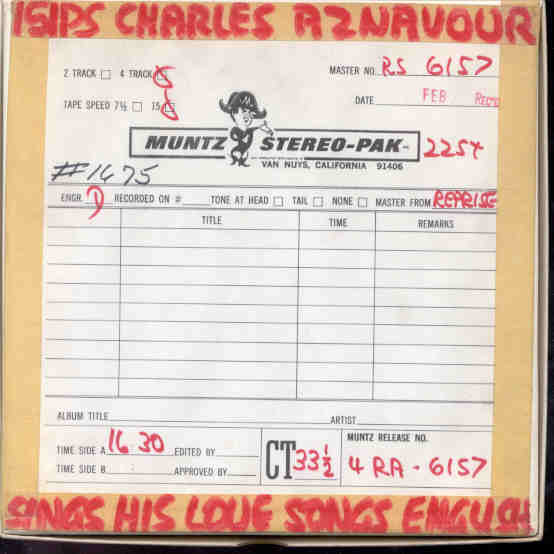 15IPS CHARLES AZNAVOUR
2 TRACK 4 TRACK
MASTER NO. RS 6157
TAPE SPEED 7½ 15
DATE FEB
MUNTZ STEREO-PAK 2254
VAN NUYS, CALIFORNIA 91406
#1675
ENGR. RECORDED ON # TONE AT HEAD TAIL NONE MASTER FROM REPRISE
TITLE TIME REMARKS
ALBUM TITLE ARTIST
TIME SIDE A 16 30 EDITED BY
TIME SIDE B APPROVED BY
CT 33½
MUNTZ RELEASE NO.
4 RA - 6157
SINGS HIS LOVE SONGS ENGLISH